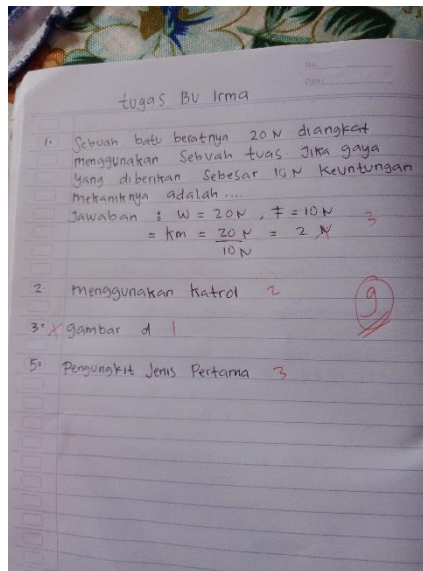 No:
Date:
tugas BU Irma
1. Sebuah batu beratnya 20 N diangkat
menggunakan Sebuah tuas. Jika gaya
yang diberikan Sebesar 10 N Keuntungan
mekaniknya adalah ....
Jawaban : W = 20N , F = 10N 3
= KM = 20 N = 2 N
10 N
2. menggunakan Katrol 2
9
3. x gambar d 1
5. Pengungkit Jenis Pertama 3